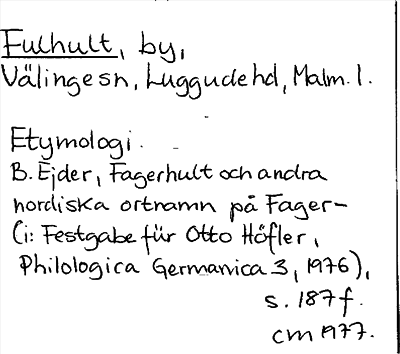 Fulhult, by,
Välinge sn, Luggude hd, Malm. l.
Etymologi.
B. Ejder, Fagerhult och andra
nordiska ortnamn på Fager-
(i: Festgabe für Otto Höfler,
Philologica Germanica 3, 1976),
s. 187 f.
CM 1977.